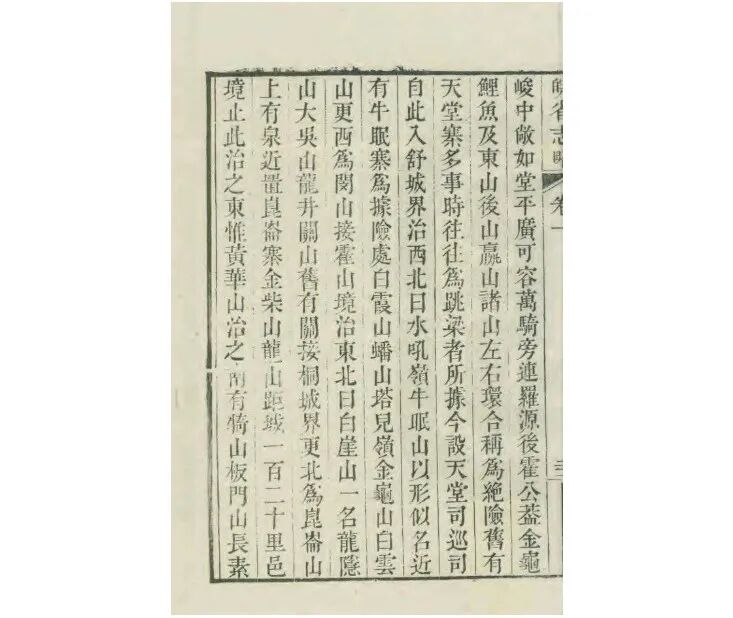 皖省志略 卷一
峻中敞如堂平廣可容萬騎旁連羅源後霍公蓋金龜
鯉魚及東山後山贏山諸山左右環合稱爲絶險舊有
天堂寨多事時往往爲跳梁者所據今設天堂司巡司
自此入舒城界治西北曰水吼嶺牛眠山以形似名近
有牛眠寨爲據險處白霞山蟠山塔兒嶺金龜山白雲
山更西爲閔山接霍山境治東北曰白崖山一名龍隱
山大吳山龍井關山舊有關接桐城界更北爲崑崙山
上有泉近置崑崙寨金柴山龍山距城一百二十里邑
境止此治之東惟黃華山治之南有犄山板門山長素